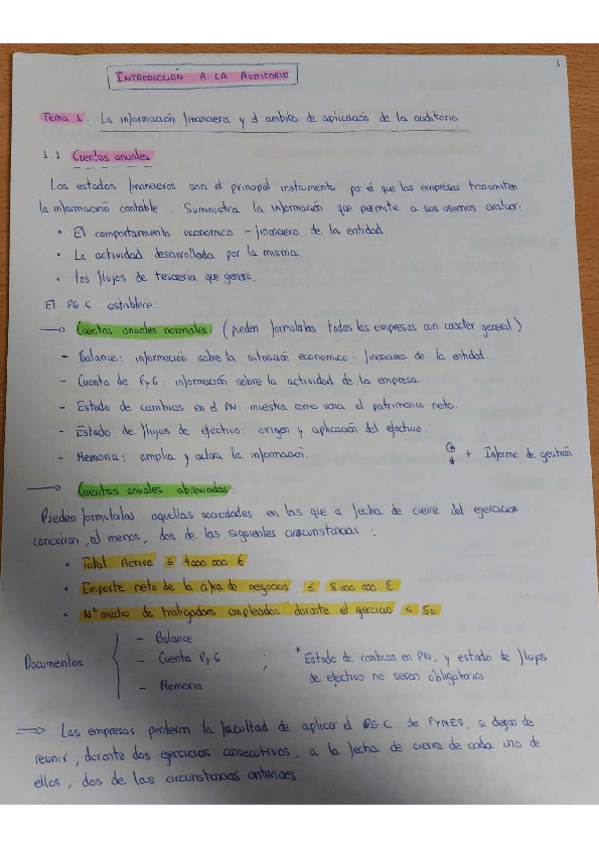 1
INTRODUCCIÓN A LA AUDITORIA
Tema 1: La información financiera y el ambito de aplicación de la auditoria
1.1 Cuentas anuales
Los estados financieros son el principal instrumento por el que las empresas transmiten
la información contable. Suministra la información que permite a sus usuarios evaluar:
• El comportamiento economico - financiero de la entidad
• La actividad desarrollada por la misma.
• los flujos de tesoreria que genera.
El P.G.C establece:
→ Cuentas anuales normales (pueden formularlas todas las empresas con carácter general)
- Balance: información sobre la situación economico - financiera de la entidad.
- Cuenta de PyG: información sobre la actividad de la empresa.
- Estado de cambios en el PN: muestra como varia el patrimonio neto.
- Estado de flujos de efectivo: origen y aplicación del efectivo.
- Memoria: amplia y aclara la información.
+ Informe de gestión
→ Cuentas anuales abreviadas:
Pueden formularlas aquellas sociedades en las que a fecha de cierre del ejercicio
concurran, al menos, dos de las siguientes circunstancias:
• Total Activo ≤ 4000 000 €
• Importe neto de la cifra de negocios ≤ 8 000 000 €
• Nº medio de trabajadores empleados durante el ejercicio ≤ 50
Documentos
- Balance
- Cuenta PyG ;
- Memoria
* Estado de cambios en PN, y estado de flujos
de efectivo no seran obligatorios
⇒ Las empresas perderan la facultad de aplicar el P.G.C. de PYMES, si dejan de
reunir, durante dos ejercicios consecutivos, a la fecha de cierre de cada uno de
ellos, dos de las circunstancias anteriores.